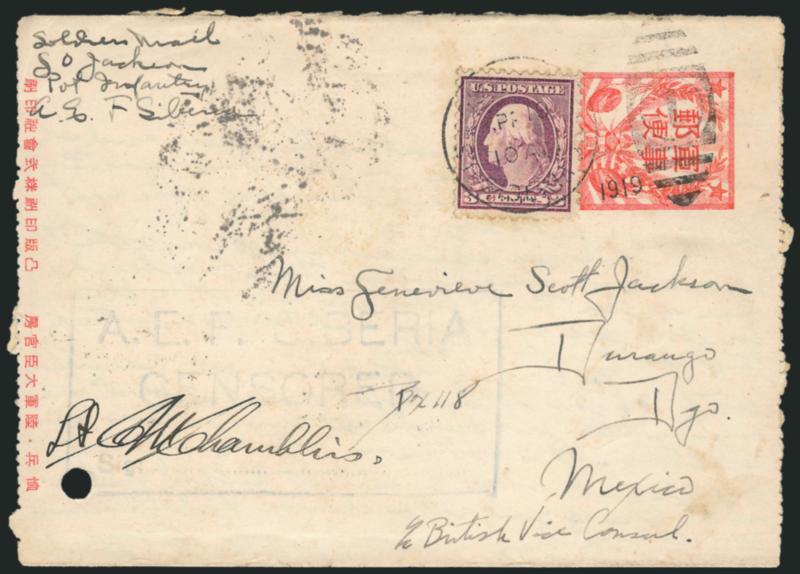 Soldiers Mail
S O Jackson
Pvt Infantry
A. E. F Siberia
U.S. POSTAGE
10 A
1919
軍事
郵便
Miss Genevieve Scott Jackson
Durango
Dgo.
Mexico
c/o British Vice Consul.
A. E. F. SIBERIA
CENSORED
Px 118
Lt Chamblins.
恤兵・陸軍大臣官房
凸版印刷株式會社印刷